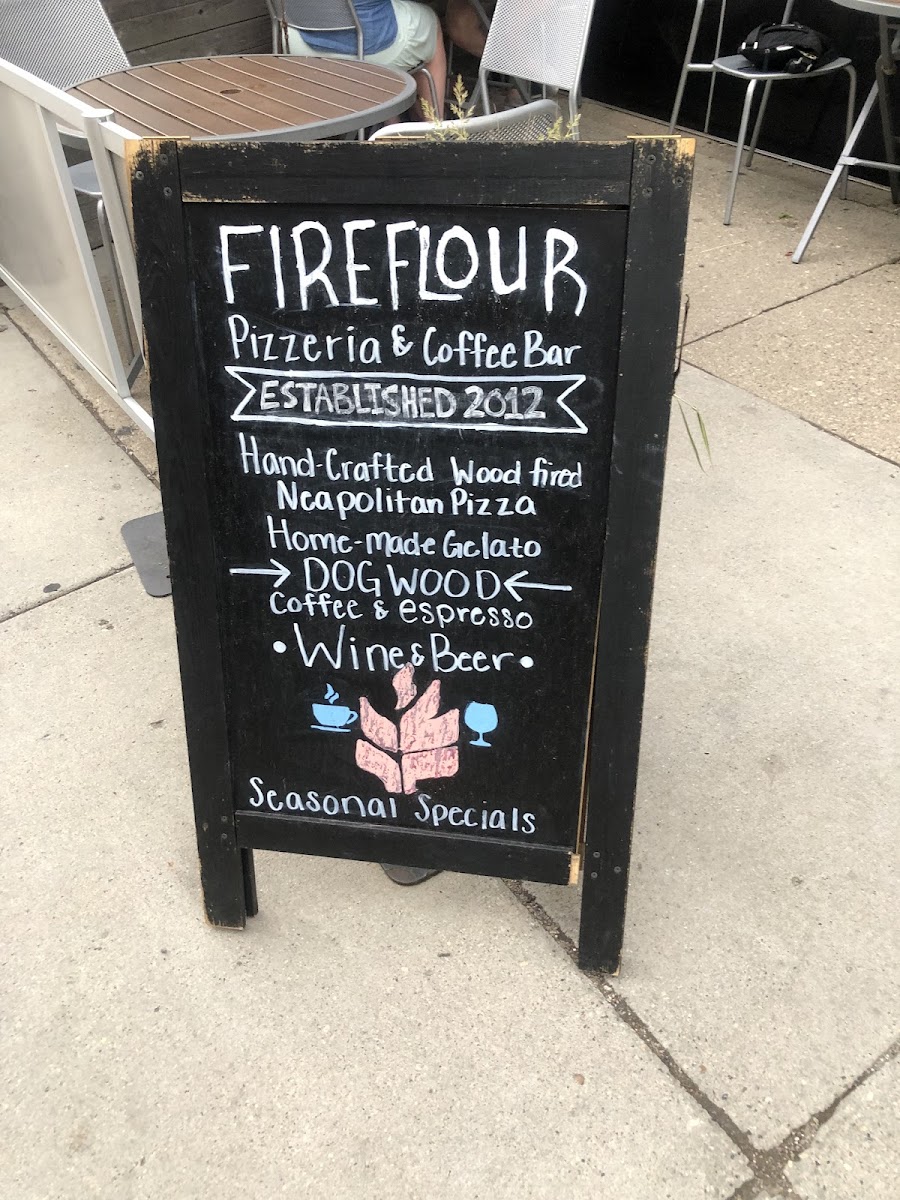 FIREFLOUR
Pizzeria & Coffee Bar
ESTABLISHED 2012
Hand-Crafted Wood fired
Neapolitan Pizza
Home-made Gelato
→ DOGWOOD ←
Coffee & espresso
• Wine & Beer •
Seasonal Specials